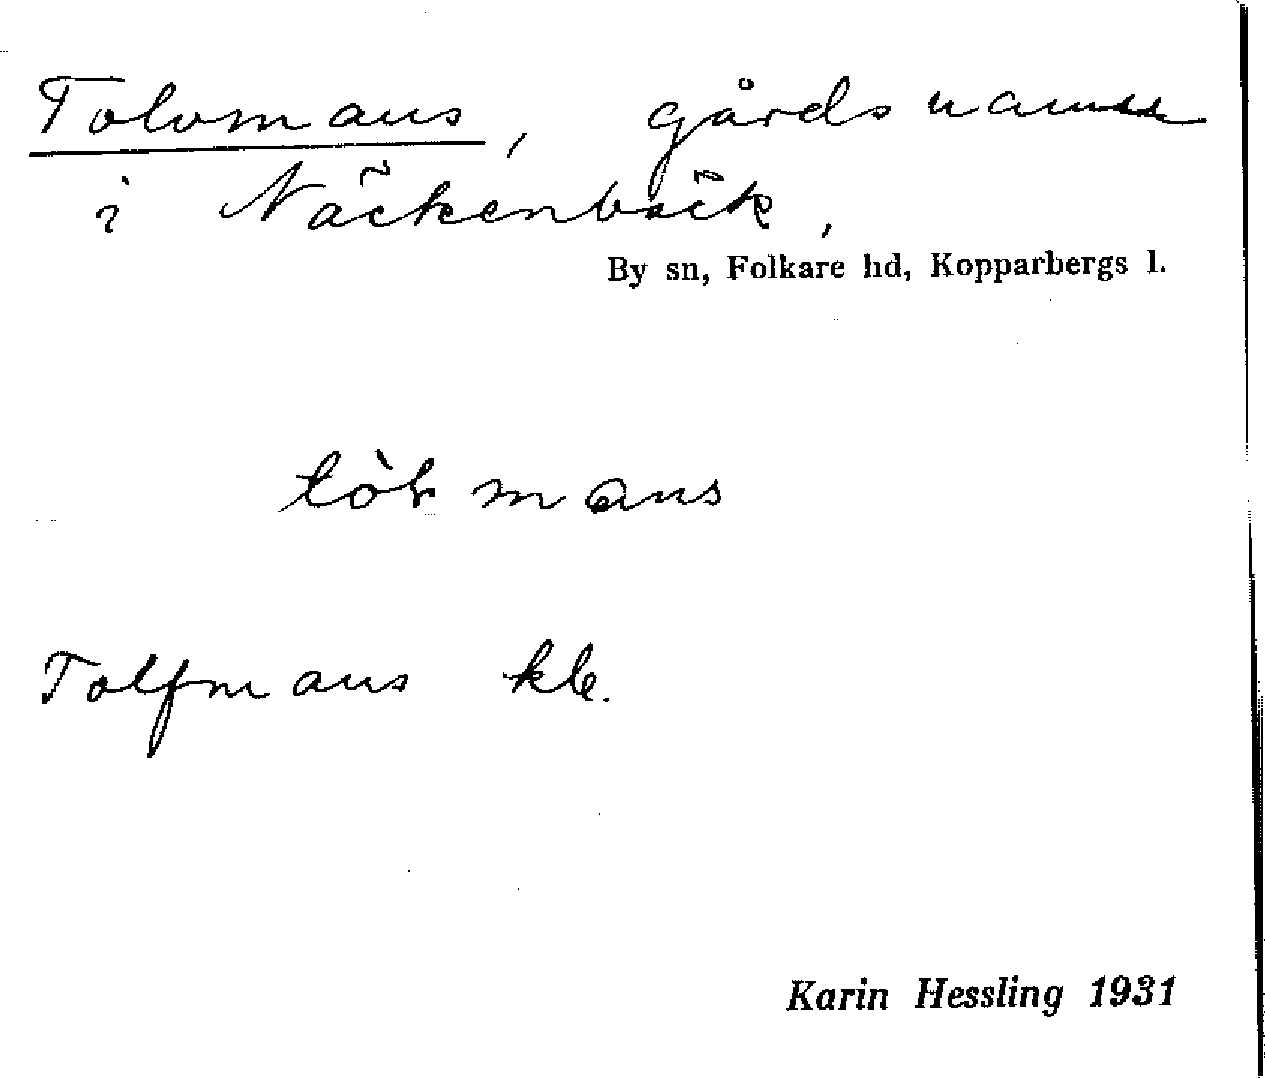 Tolvmans, gårdsnamn
i Näckenbäck,
By sn, Folkare hd, Kopparbergs l.
mans
Tolfmans kb.
Karin Hessling 1931